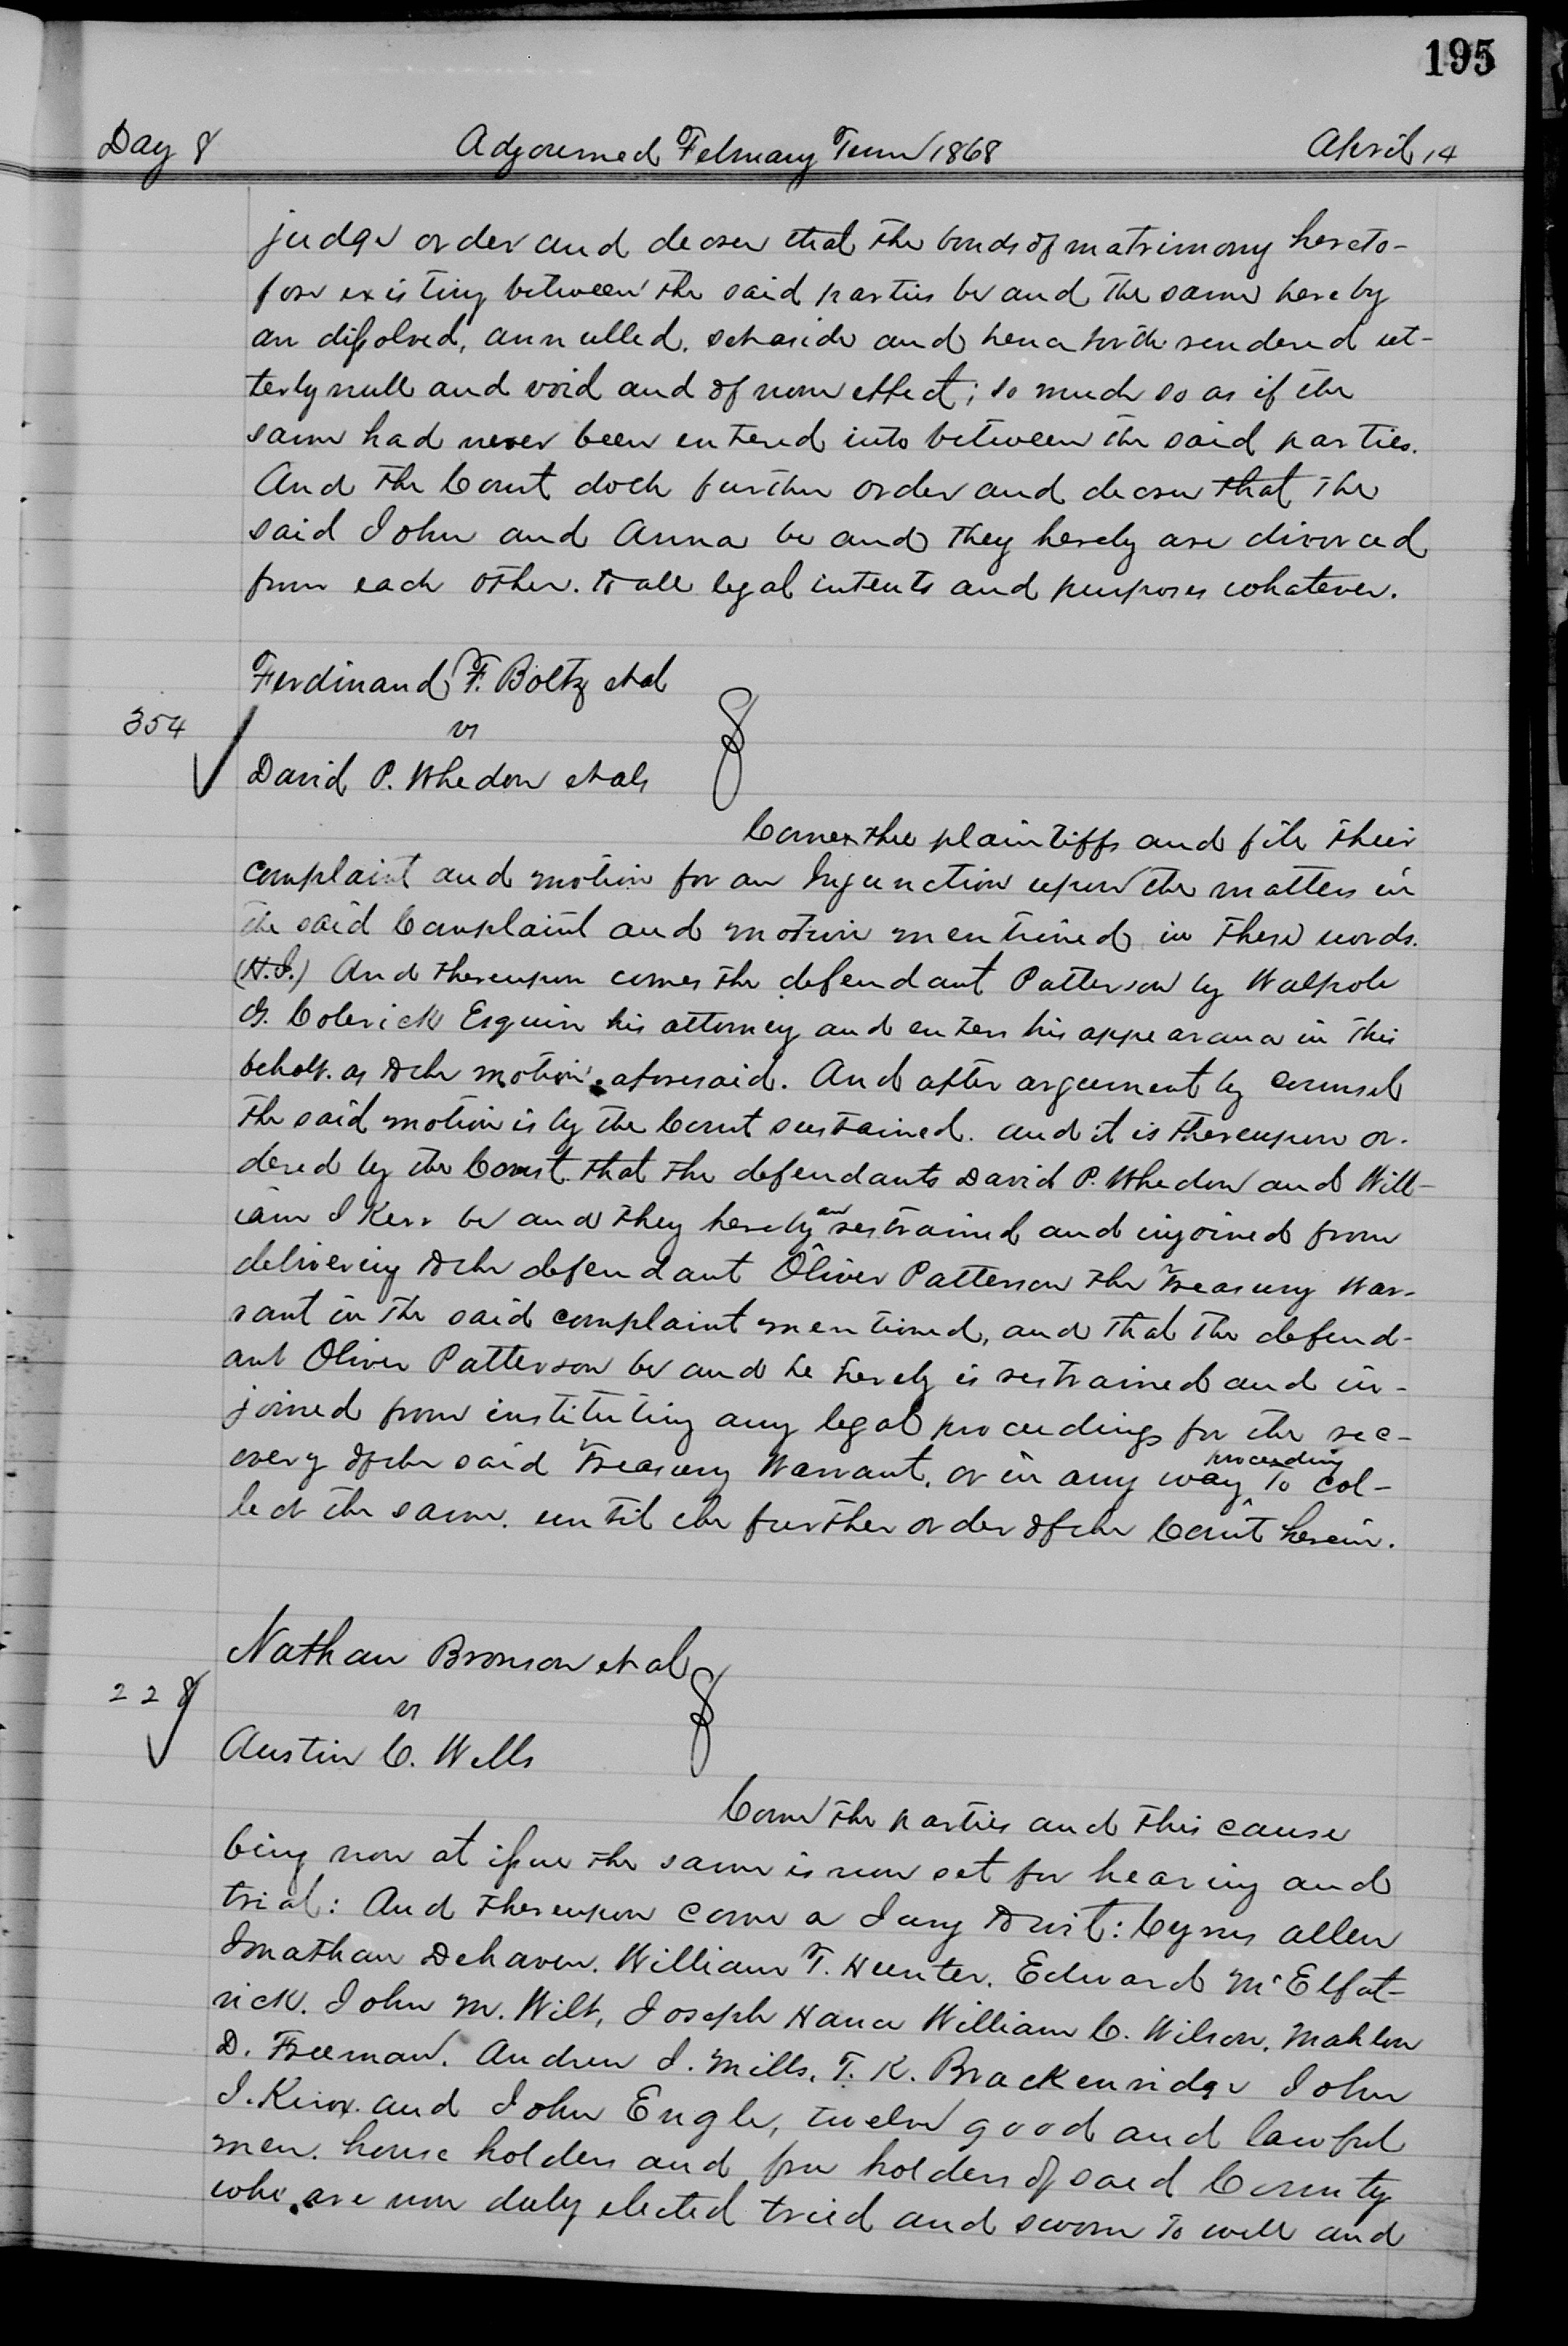 195
Day 8 Adjourned February Term 1868 April 14
judge order and decree that the bonds of matrimony hereto-
fore existing between the said parties be and the same hereby
are dissolved, annulled, set aside and henceforth rendered ut-
terly null and void and of none effect; so much so as if the
same had never been entered into between the said parties.
And the Court doth further order and decree that the
said John and Anna be and they hereby are divorced
from each other. to all legal intents and purposes whatever.
Ferdinand F. Boltz et al
354 vs
David P. Whedon et als
Comes the plaintiffs and file their
complaint and motion for an Injunction upon the matters in
the said Complaint and motion mentioned in these words.
(H.I.) And thereupon comes the defendant Patterson by Walpole
G. Colerick Esquire his attorney and enters his appearance in this
behalf. as to the motion aforesaid. And after argument by counsel
the said motion is by the Court sustained. and it is thereupon or-
dered by the Court that the defendants David P. Whedon and Will-
iam J Kerr be and they hereby are restrained and injoined from
delivering to the defendant Oliver Patterson the Treasury War-
rant in the said complaint mentioned, and that the defend-
ant Oliver Patterson be and he hereby is restrained and in-
joined from instituting any legal proceedings for the rec-
overy of the said Treasury Warrant, or in any way proceeding to col-
lect the same. until the further order of the Court herein.
Nathan Bronson et al
228 vs
Austin C. Wells
Come the parties and this cause
being now at issue the same is now set for hearing and
trial: And thereupon come a Jury to wit: Cyrus Allen
Jonathan Dehaven. William T. Hunter. Edward McElfat-
rick. John M. Wilt, Joseph Hance William C. Wilson, Mahlon
D. Freeman. Andrew J. Mills, T. K. Brackenridge John
J. Knox. and John Engle, twelve good and lawful
men. house holders and free holders of said County
who are now duly elected tried and sworn to well and